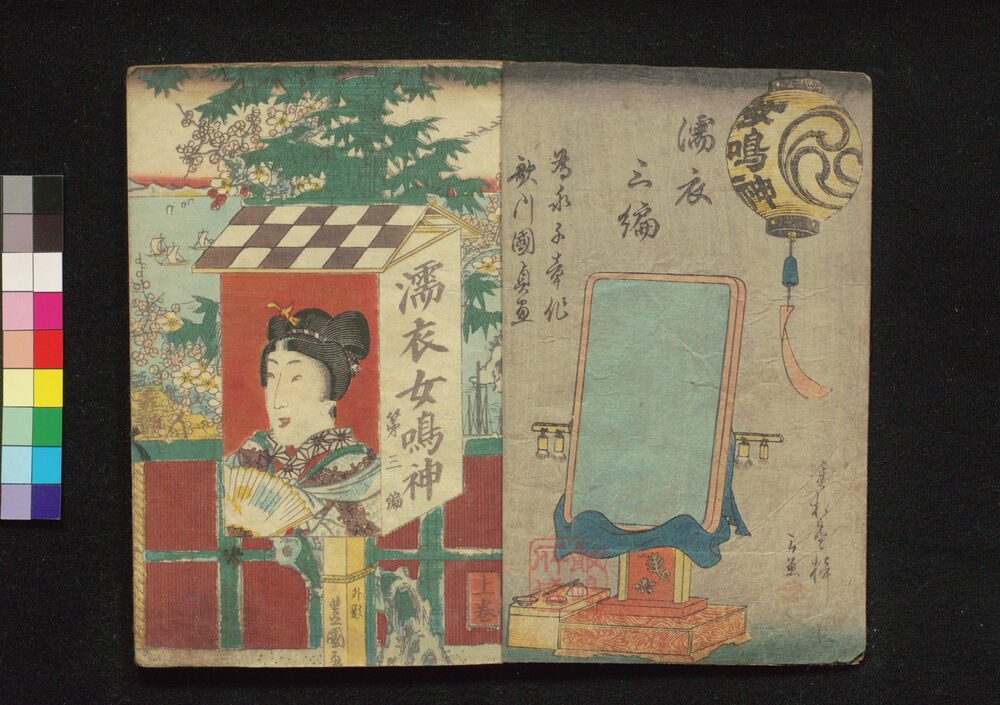 女鳴神
濡衣
三編
為永子春作
歌川國貞画
濡衣女鳴神
第三編
上巻
外題
豊國画